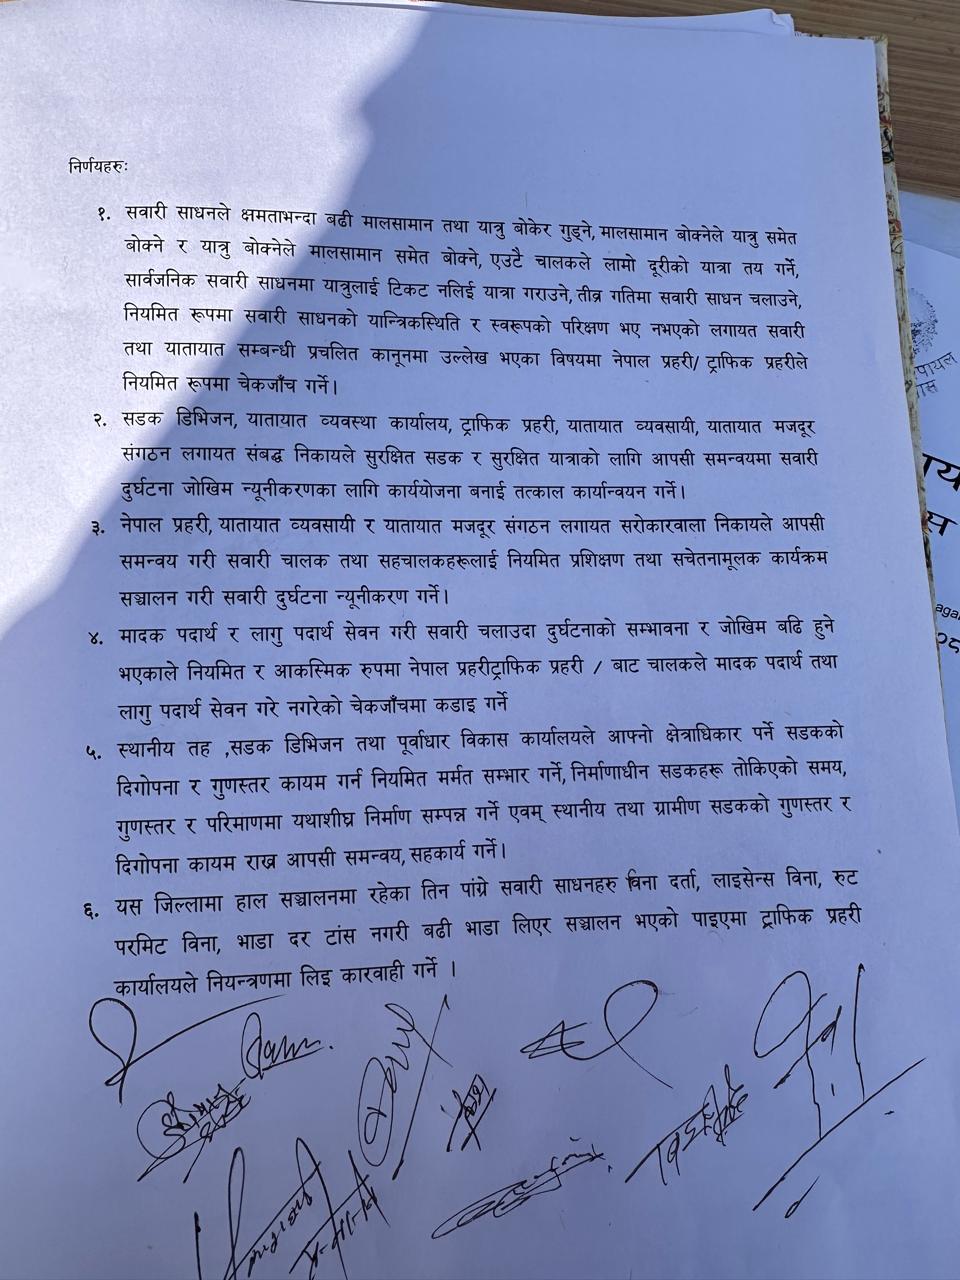 निर्णयहरुः
१. सवारी साधनले क्षमताभन्दा बढी मालसामान तथा यात्रु बोकेर गुड्ने, मालसामान बोक्नेले यात्रु समेत
बोक्ने र यात्रु बोक्नेले मालसामान समेत बोक्ने, एउटै चालकले लामो दूरीको यात्रा तय गर्ने,
सार्वजनिक सवारी साधनमा यात्रुलाई टिकट नलिई यात्रा गराउने, तीव्र गतिमा सवारी साधन चलाउने,
नियमित रूपमा सवारी साधनको यान्त्रिकस्थिति र स्वरूपको परिक्षण भए नभएको लगायत सवारी
तथा यातायात सम्बन्धी प्रचलित कानूनमा उल्लेख भएका विषयमा नेपाल प्रहरी/ ट्राफिक प्रहरीले
नियमित रूपमा चेकजाँच गर्ने।
२. सडक डिभिजन, यातायात व्यवस्था कार्यालय, ट्राफिक प्रहरी, यातायात व्यवसायी, यातायात मजदूर
संगठन लगायत संबद्ध निकायले सुरक्षित सडक र सुरक्षित यात्राको लागि आपसी समन्वयमा सवारी
दुर्घटना जोखिम न्यूनीकरणका लागि कार्ययोजना बनाई तत्काल कार्यान्वयन गर्ने।
३. नेपाल प्रहरी, यातायात व्यवसायी र यातायात मजदूर संगठन लगायत सरोकारवाला निकायले आपसी
समन्वय गरी सवारी चालक तथा सहचालकहरूलाई नियमित प्रशिक्षण तथा सचेतनामूलक कार्यक्रम
सञ्चालन गरी सवारी दुर्घटना न्यूनीकरण गर्ने।
४. मादक पदार्थ र लागु पदार्थ सेवन गरी सवारी चलाउदा दुर्घटनाको सम्भावना र जोखिम बढि हुने
भएकाले नियमित र आकस्मिक रुपमा नेपाल प्रहरीट्राफिक प्रहरी / बाट चालकले मादक पदार्थ तथा
लागु पदार्थ सेवन गरे नगरेको चेकजाँचमा कडाइ गर्ने
५. स्थानीय तह ,सडक डिभिजन तथा पूर्वाधार विकास कार्यालयले आफ्नो क्षेत्राधिकार पर्ने सडकको
दिगोपना र गुणस्तर कायम गर्न नियमित मर्मत सम्भार गर्ने, निर्माणाधीन सडकहरू तोकिएको समय,
गुणस्तर र परिमाणमा यथाशीघ्र निर्माण सम्पन्न गर्ने एवम् स्थानीय तथा ग्रामीण सडकको गुणस्तर र
दिगोपना कायम राख्न आपसी समन्वय, सहकार्य गर्ने।
६. यस जिल्लामा हाल सञ्चालनमा रहेका तिन पांग्रे सवारी साधनहरु विना दर्ता, लाइसेन्स विना, रुट
परमिट विना, भाडा दर टांस नगरी बढी भाडा लिएर सञ्चालन भएको पाइएमा ट्राफिक प्रहरी
कार्यालयले नियन्त्रणमा लिइ कारवाही गर्ने ।